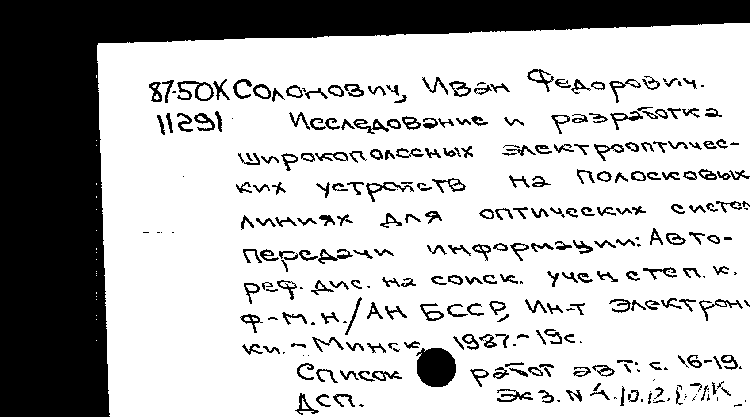 87-5ОК Соломонович, Иван Федорович.
11291 Исследование и разработка
широкополосных электрооптичес-
ких устройств на полосковых
линиях для оптических систем
передачи информации: Авто-
реф. дис. на соиск. учен. степ. к.
ф-м.н./АН БССР, Ин-т электрони
ки. - Минск, 1987. - 19с.
Список работ авт: с. 16-19.
ДСП. Экз. N